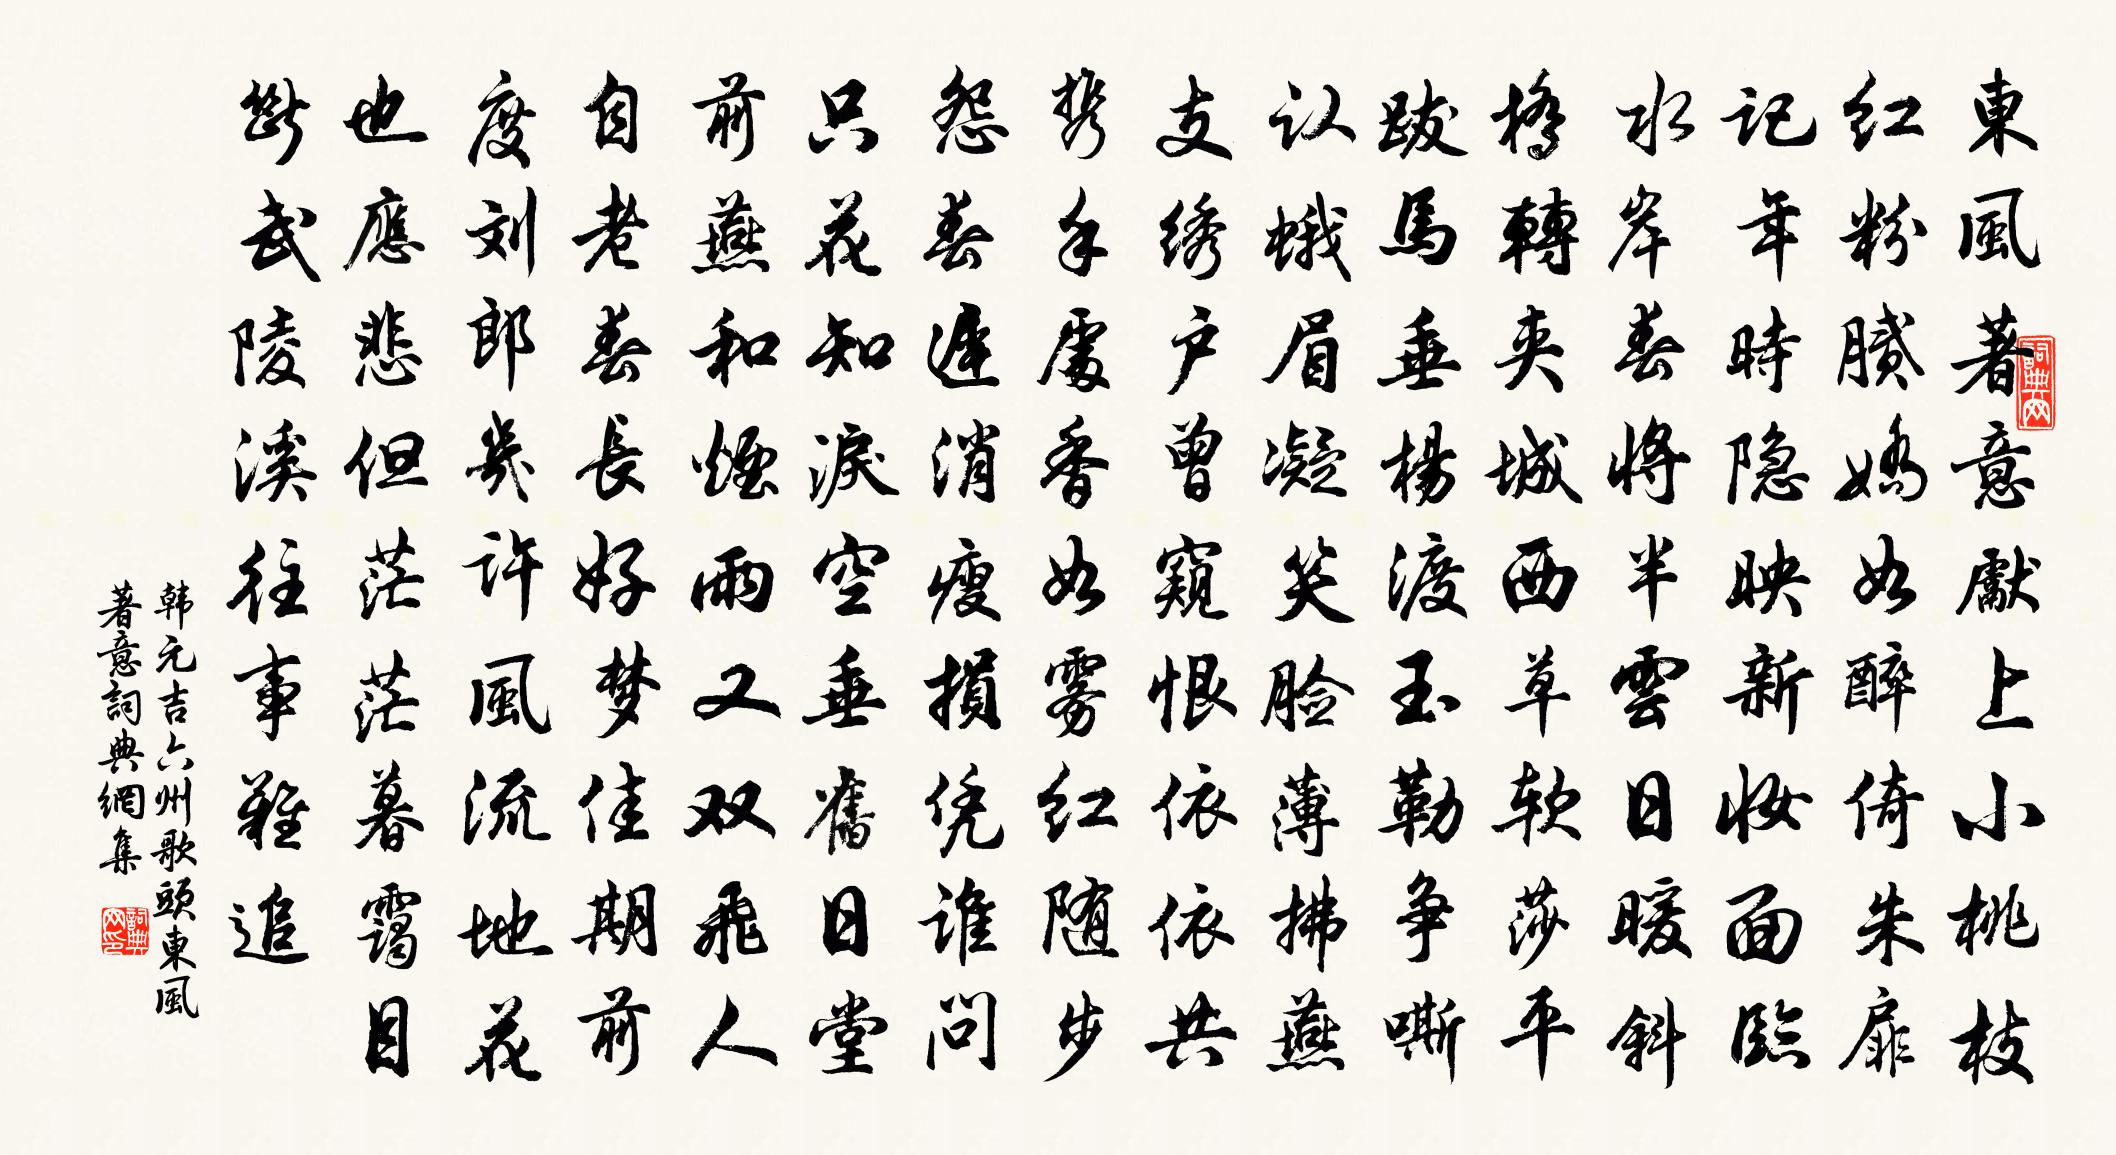 東風著意獻上小桃枝
红粉膩嬌如醉倚朱扉
记年時隐映新妆面臨
水岸春將半雲日暖斜
橋轉夾城西草软莎平
跋馬垂楊渡玉勒争嘶
认蛾眉凝笑脸薄拂燕
支绣户曾窺恨依依共
携手處香如雾红随步
怨春遲消瘦損凭谁问
只花知淚空垂舊日堂
前燕和煙雨又双飛人
自老春長好梦佳期前
度刘郎幾许風流地花
也應悲但茫茫暮靄目
斷武陵溪往事難追
韩元吉六州歌頭東風
著意詞典網集
詞典网
詞典网印